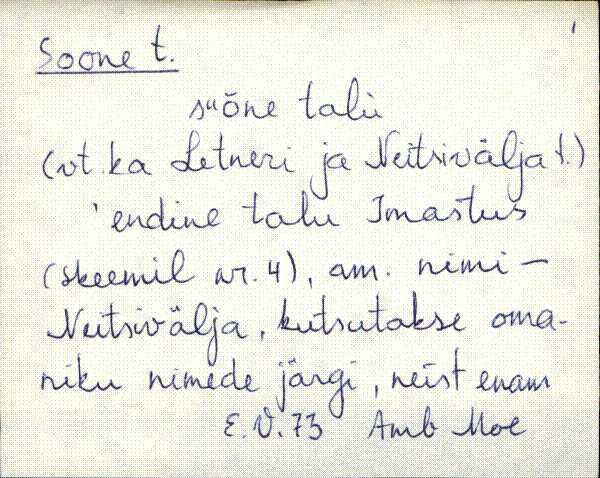 1
Soone t.
sᵘõne talu
(vt. ka Letneri ja Neitsivälja t.)
'endine talu Imastus
(skeemil nr. 4), am. nimi –
Neitsivälja, kutsutakse oma-
niku nimede järgi, neist enam
E.V.73 Amb Moe